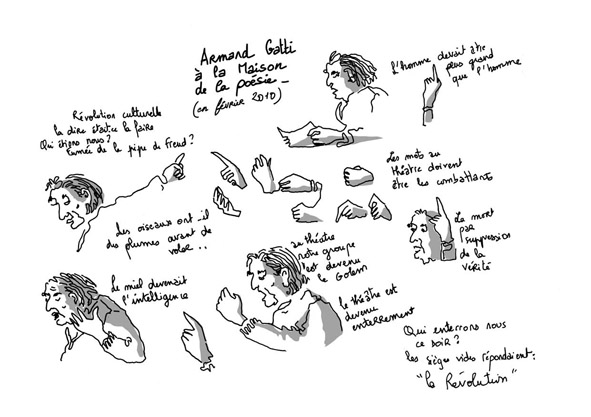 Armand Gatti
à la Maison
de la poésie_
(en février 2010)
L'homme devait être
plus grand
que l'homme
Révolution culturelle
la dire était-ce la faire
Qui étions nous?
fumée de la pipe de Freud?
Les mots au
théâtre doivent
être les combattants
Les oiseaux ont-il
des plumes avant de
voler...
La mort
par
suppression
de la
vérité
au théâtre
notre groupe
est devenu
le Golem
Le miel devenait
l'intelligence
le théâtre est
devenu
enterrement
Qui enterrons nous
ce soir?
les sièges vides répondaient:
"la Révolution"